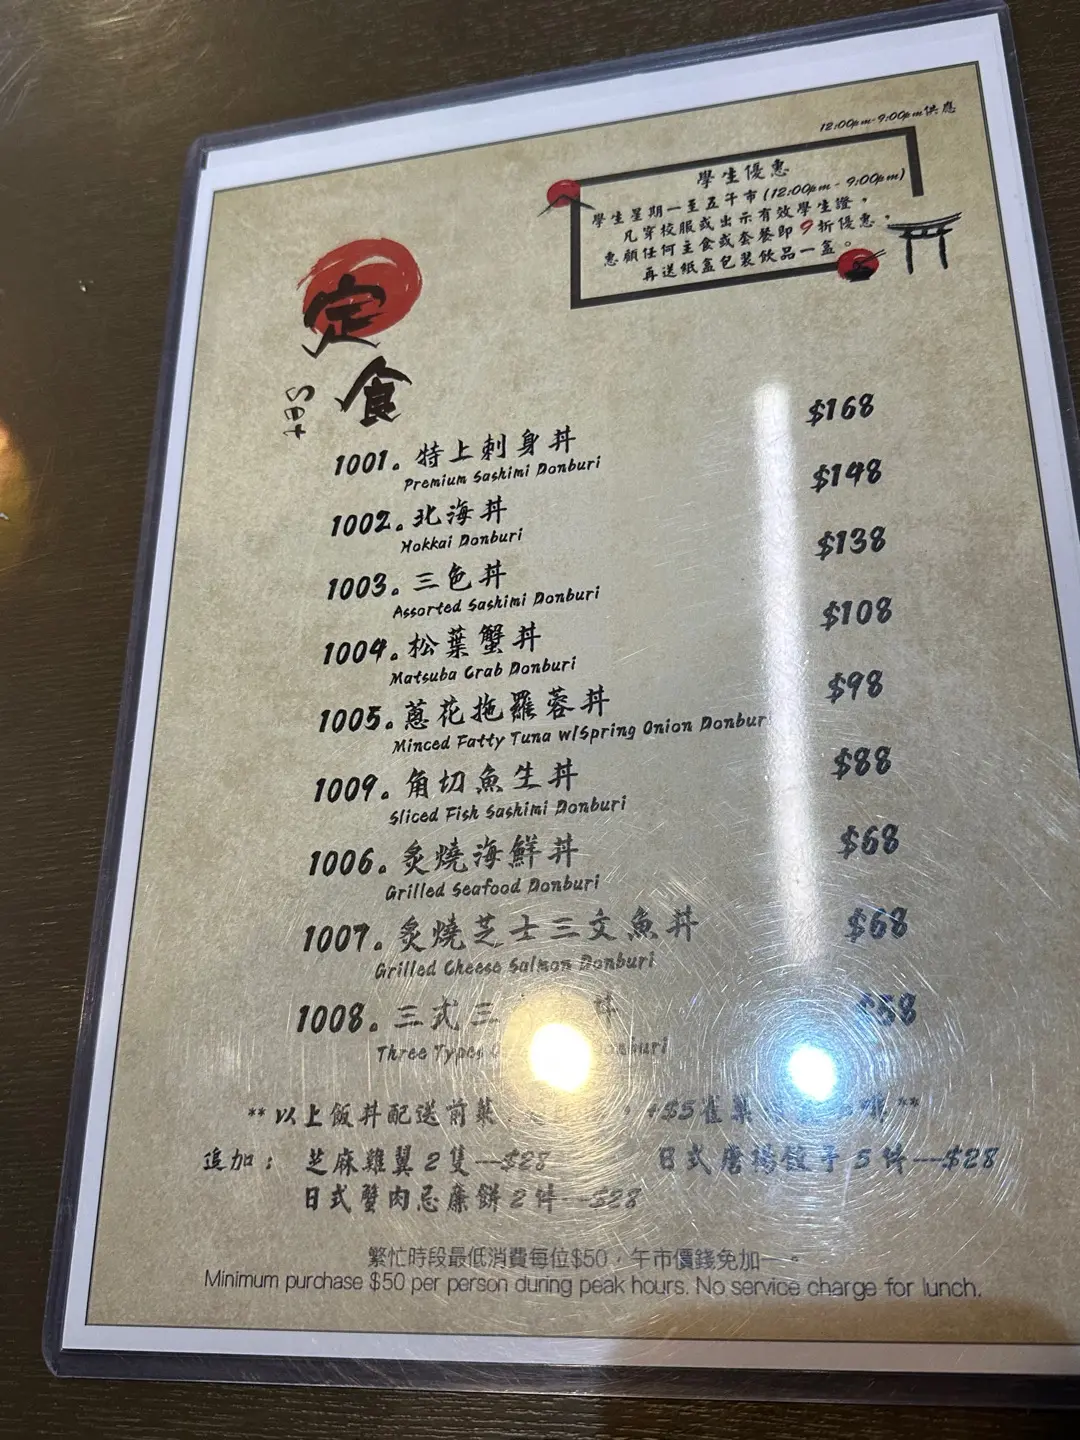 12:00pm-9:00pm供應
學生優惠
學生星期一至五午市(12:00pm - 9:00pm)
凡穿校服或出示有效學生證，
惠顧任何主食或套餐即9折優惠，
再送紙盒包裝飲品一盒。
定食
Set
1001。特上刺身丼 $168
Premium Sashimi Donburi
1002。北海丼 $148
Hokkai Donburi
1003。三色丼 $138
Assorted Sashimi Donburi
1004。松葉蟹丼 $108
Matsuba Crab Donburi
1005。蔥花拖羅蓉丼 $98
Minced Fatty Tuna w/Spring Onion Donburi
1009。角切魚生丼 $88
Sliced Fish Sashimi Donburi
1006。炙燒海鮮丼 $68
Grilled Seafood Donburi
1007。炙燒芝士三文魚丼 $68
Grilled Cheese Salmon Donburi
1008。三式三 丼 $58
Three Types Donburi
**以上飯丼配送前菜 ，+$5雀巢 **
追加： 芝麻雞翼2隻---$28 日式唐揚餃子5件---$28
日式蟹肉忌廉餅2件---$28
繁忙時段最低消費每位$50，午市價錢免加一。
Minimum purchase $50 per person during peak hours. No service charge for lunch.